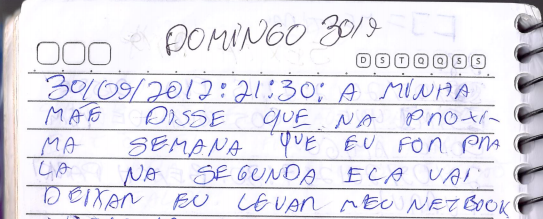 DOMINGO 30/9
D S T Q Q S S
30/09/2012: 21:30: A MINHA
MÃE DISSE QUE NA PROXI-
MA SEMANA QUE EU FOR PRA
LA NA SEGUNDA ELA VAI
DEIXAR EU LEVAR MEU NETBOOK